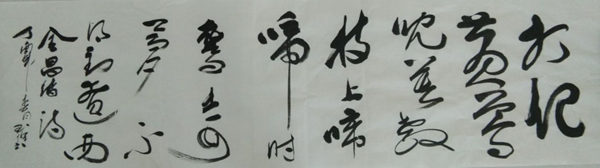 打起
黄莺
儿莫教
枝上啼
啼时
惊妾
梦不
得到辽西
金昌绪诗
丁酉